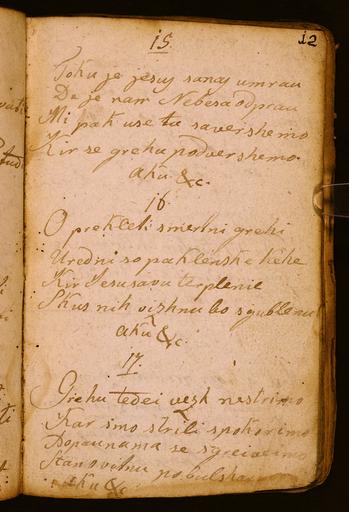 15. 12
Toku je jesus sanas umrau
De je nam Nebesa odprau
Mi pak use tu savershemo
Kir se grehu podvershemo
aku &c.
16
O prekleti smertni grehi
Uredni so paklenske kehe
Kir Jesusavu terplenie
Skus nih vishnu bo sgublenu
aku &c.
17.
Grehu tedei nastrimo
Kar smo strili spokorimo
Dopaunama se
Stanovitnu
aku &c